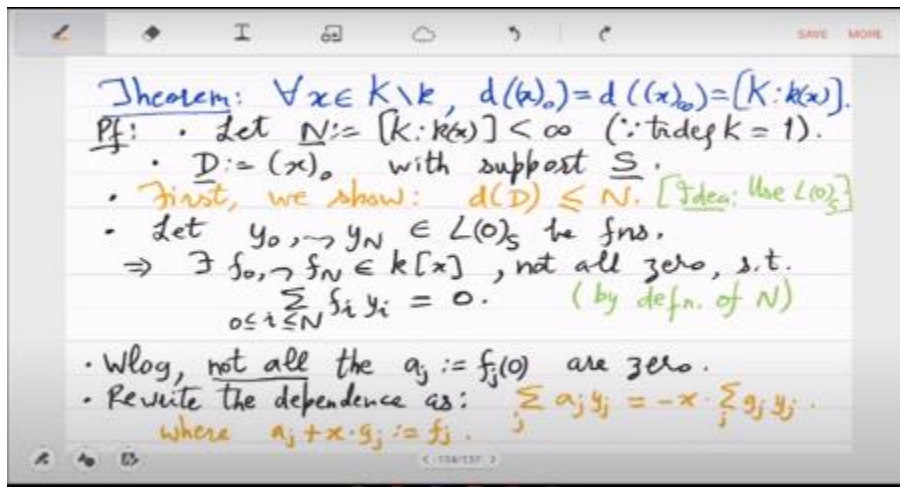 SAVE MORE
Theorem: ∀ x ∈ K \ k, d((x)₀) = d((x)∞) = [K : k(x)].
Pf: · Let N := [K : k(x)] < ∞ (∵ trdeg K = 1).
· D := (x)₀ with support S.
· First, we show: d(D) ≤ N. [Idea: Use L(0)_S]
· Let y₀, ⇝ y_N ∈ L(0)_S be fns.
⇒ ∃ f₀, ⇝ f_N ∈ k[x], not all zero, s.t.
∑_{0≤i≤N} fᵢ yᵢ = 0. (by defn. of N)
· Wlog, not all the aⱼ := fⱼ(0) are zero.
· Rewrite the dependence as: ∑_j aⱼ yⱼ = -x · ∑_j gⱼ yⱼ.
where aⱼ + x · gⱼ := fⱼ.